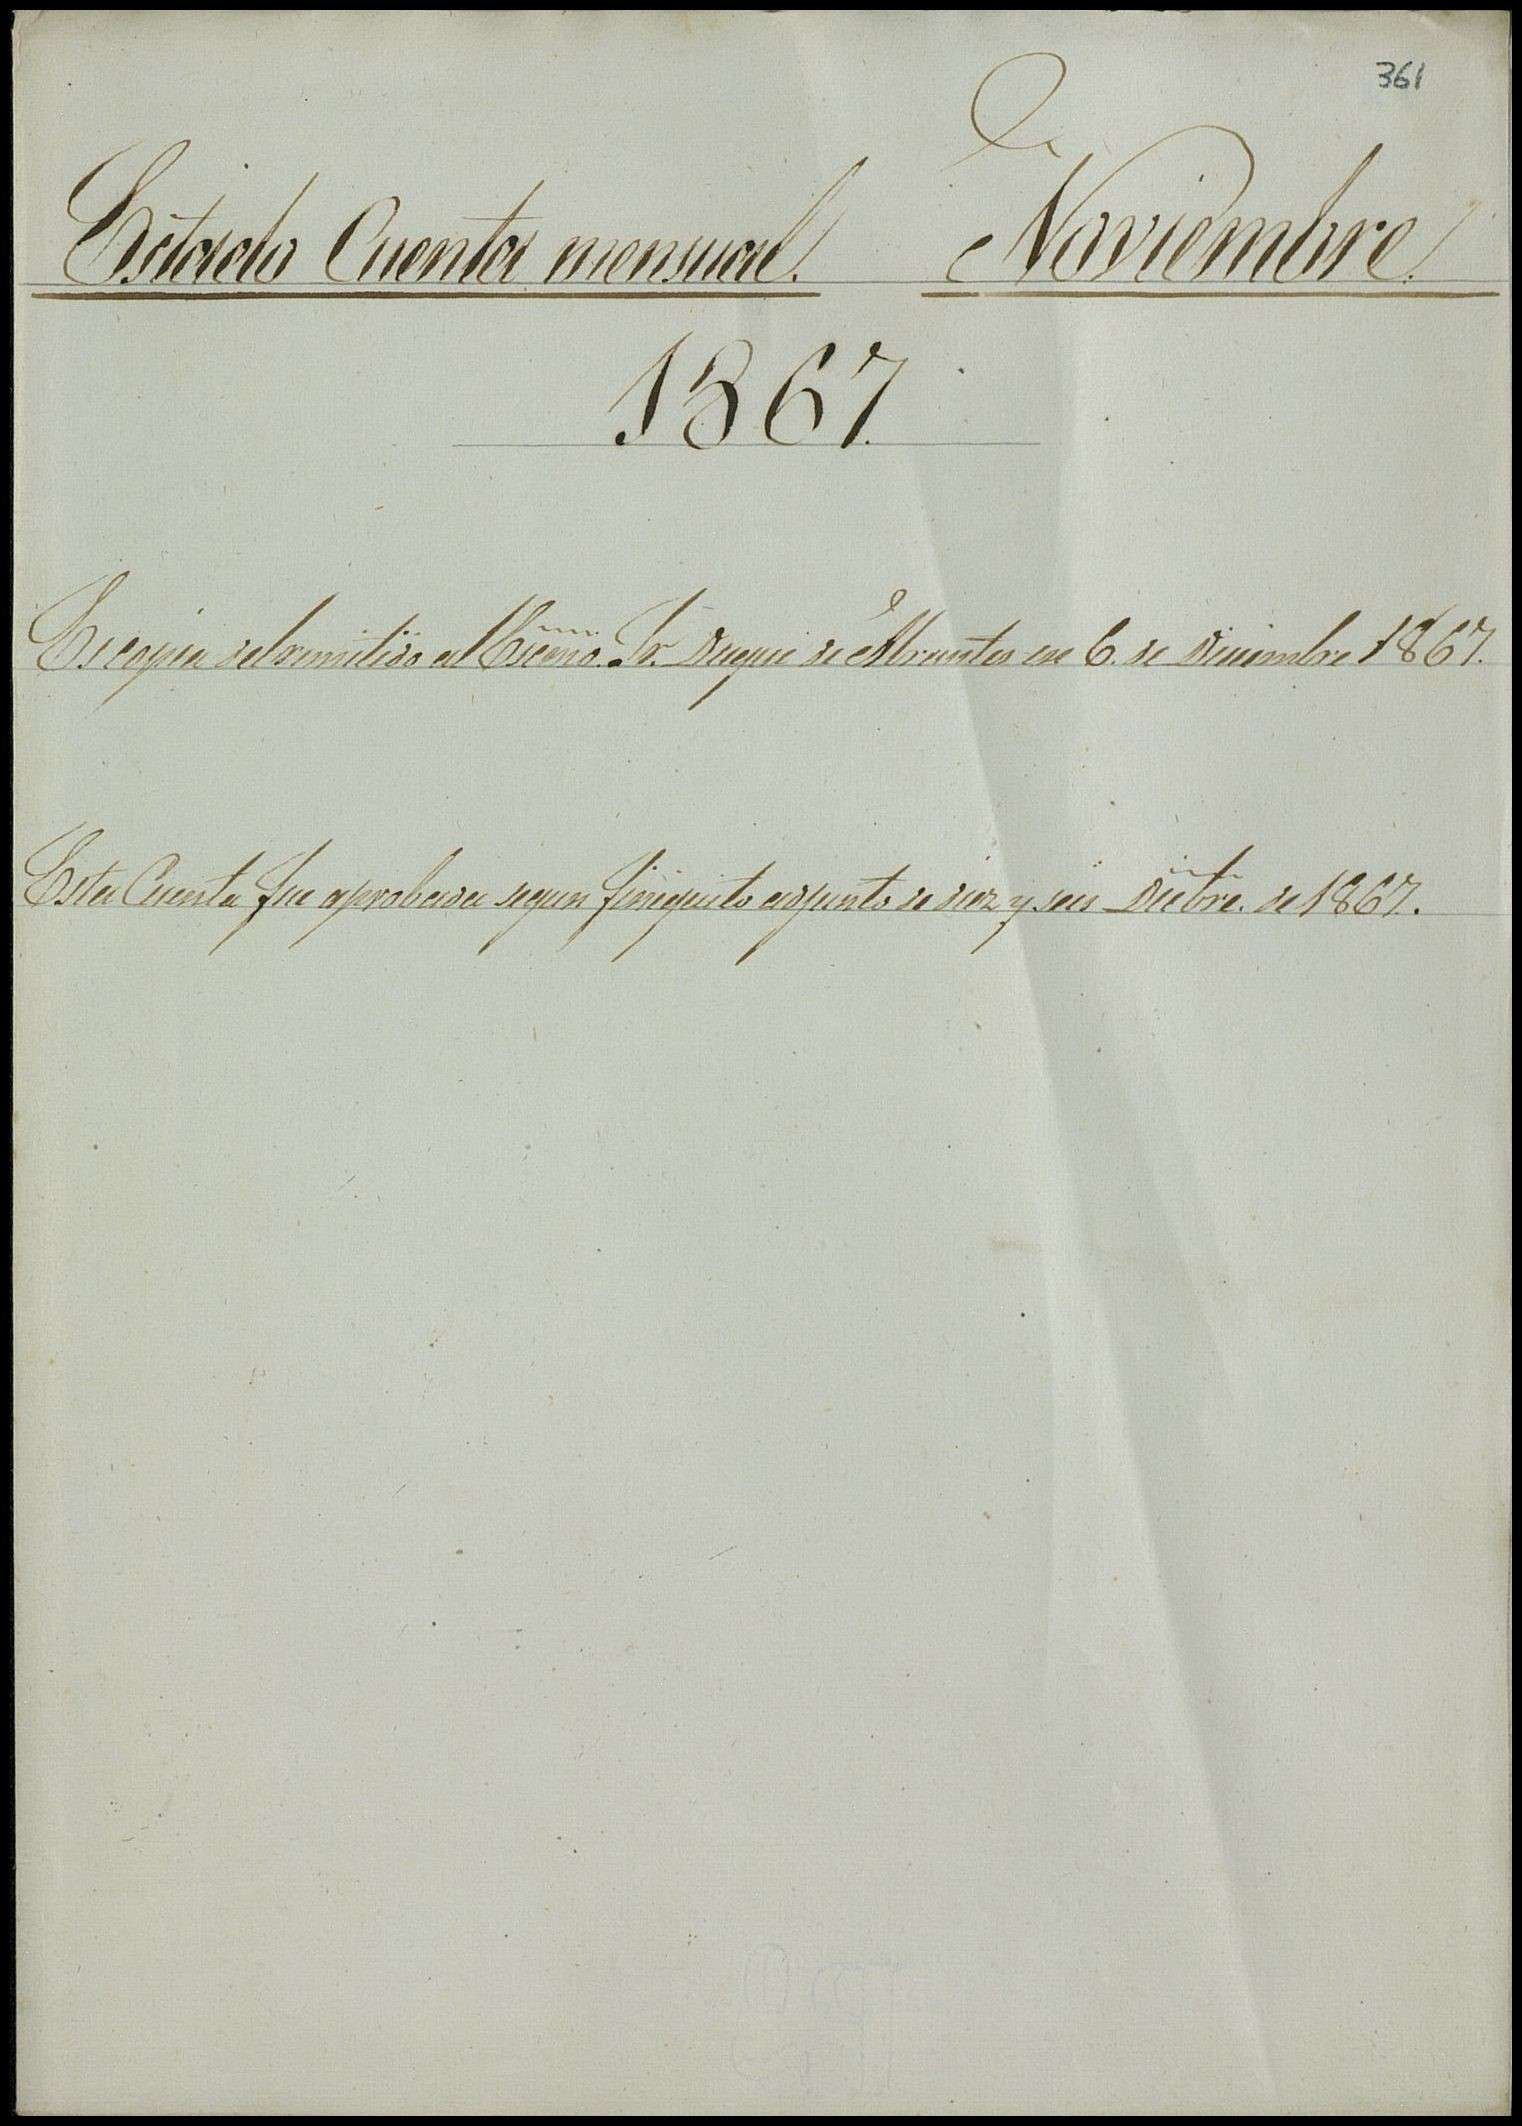 361
Estado Cuenta mensual. Noviembre.
1867.
Es copia del remitido al Escmo. Sr. Duque de Abrantes en 6. de Diciembre 1867.
Esta Cuenta fue aprobada segun finiquito adjunto de diez y seis Dicbre. de 1867.